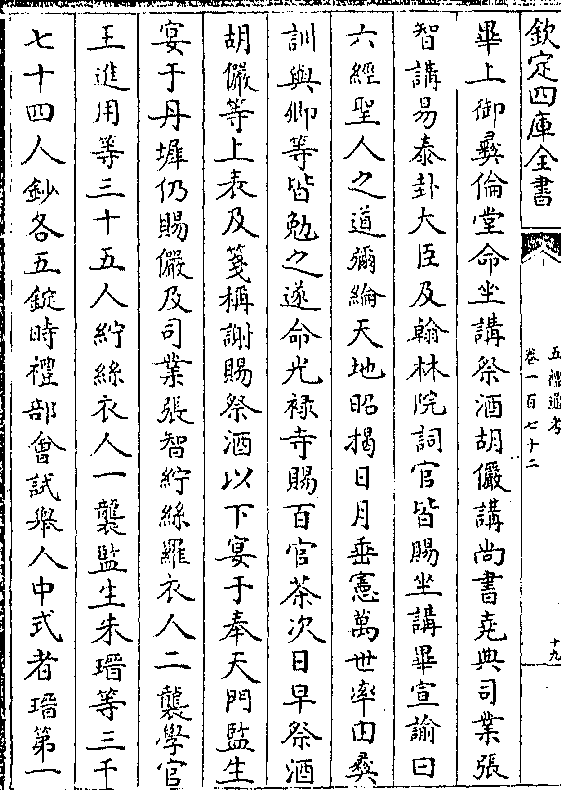 欽定四庫全書
五禮通考
卷一百七十二
十九
畢上御彛倫堂命坐講祭酒胡儼講尚書堯典司業張
智講易泰卦大臣及翰林院詞官皆賜坐講畢宣諭曰
六經聖人之道彌綸天地昭揭日月垂憲萬世率由彛
訓與卿等皆勉之遂命光禄寺賜百官茶次日早祭酒
胡儼等上表及箋稱謝賜祭酒以下宴于奉天門監生
宴于丹墀仍賜儼及司業張智紵絲羅衣人二襲學官
王進用等三十五人紵絲衣人一襲監生朱瑨等三千
七十四人鈔各五錠時禮部會試舉人中式者瑨第一